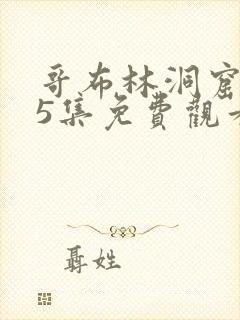 哥布林洞窟
5集免費觀
聶姓